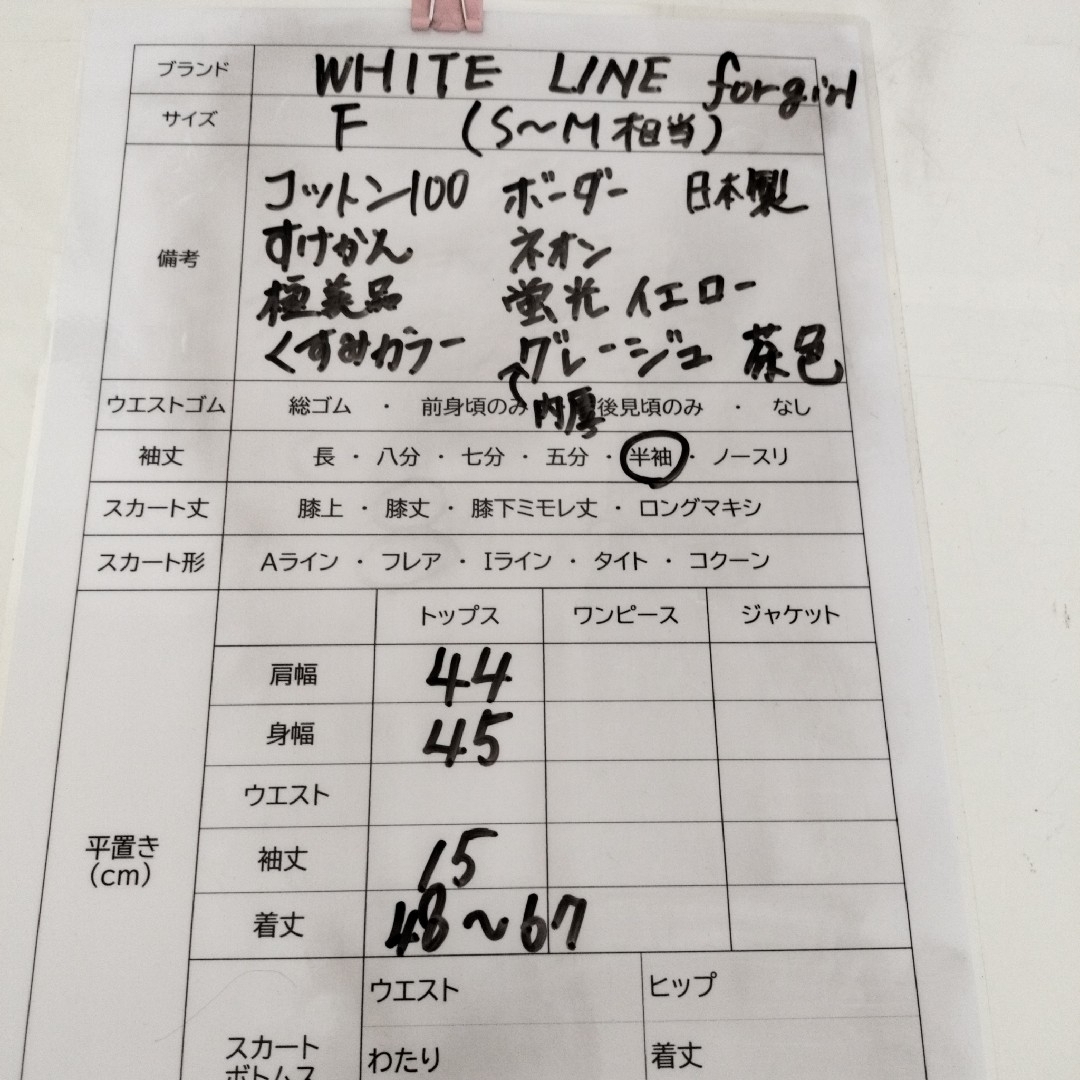 ブランド WHITE LINE forgirl
サイズ F (S〜M相当)
備考
コットン100 ボーダー 日本製
すけかん ネオン
極美品 蛍光イエロー
くすみカラー グレージュ 茶色
内厚
ウエストゴム 総ゴム ・ 前身頃のみ 後見頃のみ ・ なし
袖丈 長 ・ 八分 ・ 七分 ・ 五分 ・ 半袖 ・ ノースリ
スカート丈 膝上 ・ 膝丈 ・ 膝下ミモレ丈 ・ ロングマキシ
スカート形 Aライン ・ フレア ・ Iライン ・ タイト ・ コクーン
トップス ワンピース ジャケット
肩幅 44
身幅 45
ウエスト
平置き
(cm)
袖丈 15
着丈 48〜67
ウエスト ヒップ
スカート
わたり 着丈
ボトムス